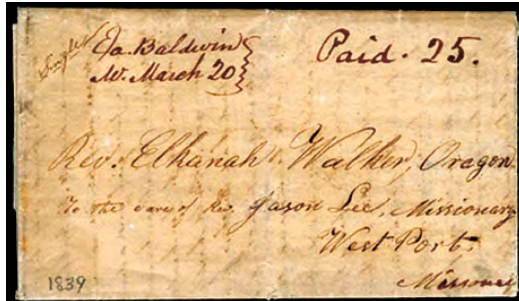 Single
Ea. Baldwin
Me. March 20
Paid. 25.
Rev. Elkanah Walker, Oragon
To the care of Rev. Jason Lee, Missionary
West Port,
Missouri
1839